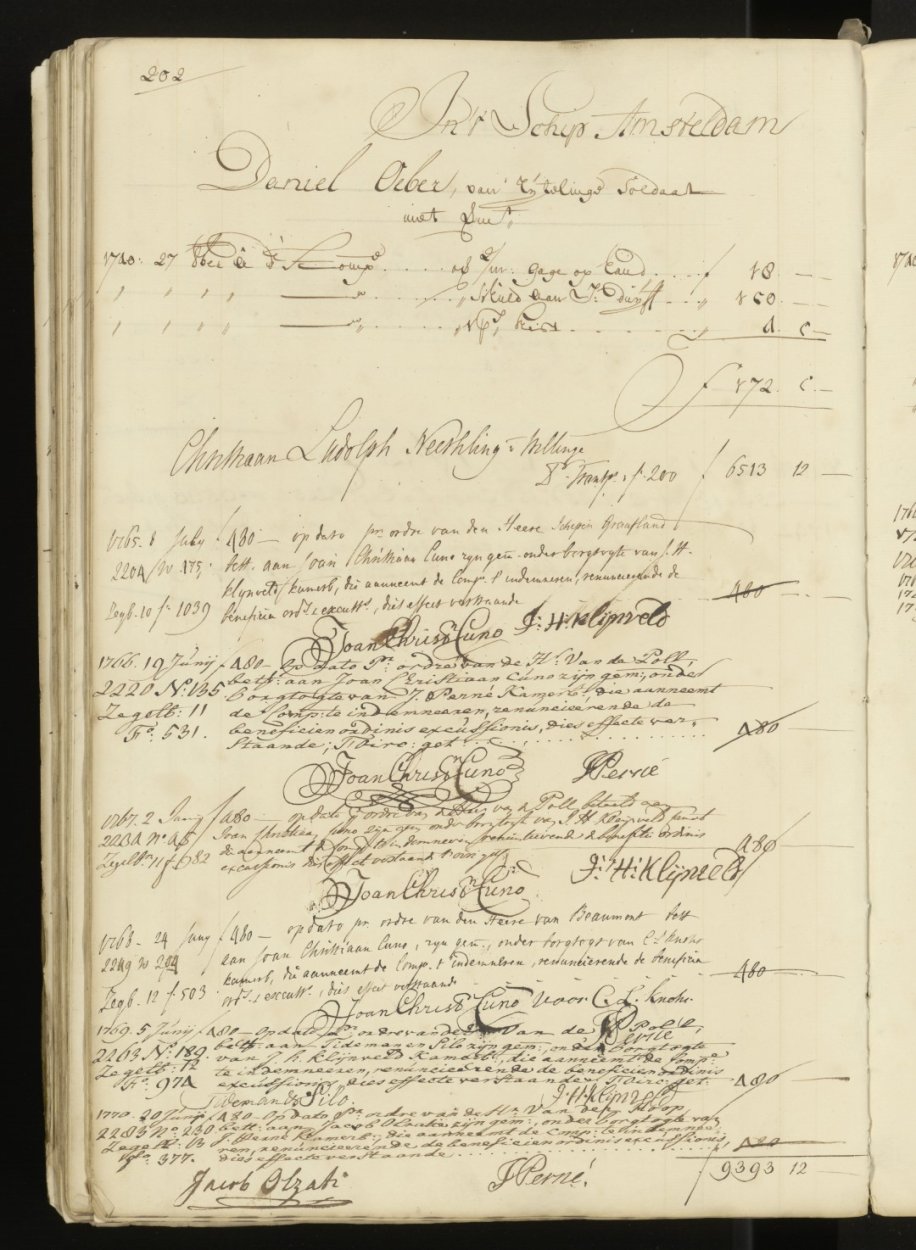 202
In't Schip Amsteldam
Daniel Oeber, van Soldaat
met
1740: 27 gage op hand f 18
" " " " " aan " 150
" " " " " kist " 4
f 172
Christiaan Ludolph Neethling
Transp. f 200 f 6513 12 —
1765. 8 July f 480 — op dato pr. ordre van den Heere Schepen Graafland
2204 / No 175; bett. aan Joan Christiaan Cuno zyn gem. onder borgtogte van J. H.
Klijnveld / kamerb., die aanneemt de Comp. t' indemneeren, renuncieerende de
Zegb. 10 f. 1039 beneficien ord. & excuss., dies effect verstaande 480
Joan Christn Cuno J: H: Klijnveld
1766. 19 Junij f 480 — Op dato Pr. ordre van de Hr. Van de Poll,
2220 No. 135 bett: aan Joan Christiaan Cuno zijn gem: onder
Zegelb: 11 borgtogte van J. Perné Kamerb: die aanneemt
Fo. 531. de Comp: te indemneeren, renuncieerende de
beneficien ordinis excussionis, dies effecte ver-
staande; 480
Joan Christn Cuno JPerné
1767. 2 Juny f 480 — op dato pr ordre van de Heer van de Poll betaald aan
Joan Christiaan Cuno zijn gem. onder borgtogt van J. H. Klijnveld
Zegelb. 11 f 982 die aanneemt de Comp. te indemneeren renuncieerende de beneficie ordinis
excussionis dies effect verstaande 480
Joan Christn Cuno J: H: Klijnveld
1768 — 24 Juny f 480 — op dato pr. ordre van den Heere van Beaumont bett
2249 aan Joan Christiaan Cuno, zyn gem., onder borgtogt van C. L. Knohr
kamerb, die aanneemt de Comp. t' indemneeren, renuncieerende de beneficien
Zegb. 12 f. 503 ord. & excuss., dies effect verstaande 480
Joan Christn Cuno voor C. L. Knohr
1769 5 Junij f 480 — Op dato Pr. ordre van de Hr Van de Poll,
2263 No. 189. bett: aan Tideman Silo zijn gem:, onder borgtogte
Zegelb: 12 van J. H. Klijnveld Kamerb:, die aanneemt de Compe
Fo. 974 te indemneeren, renuncieerende de beneficien ordinis
excussionis, dies effecte verstaande 480
Tideman Silo. J: H: Klijnveld
1770. 20 Junij f 480 — Op dato Pr. ordre van de Hr. Van der Hoop
2283 No. 230 bett: aan Jacob Olzati zijn gem:, onder borgtogte van
Zegelb: 13 J. Perné Kamerb:, die aanneemt de Comp: te indemnee-
Fo. 377. ren, renuncieerende de beneficien ordinis excussionis,
dies effecte verstaande 480
9393 12 —
Jacob Olzati JPerné.